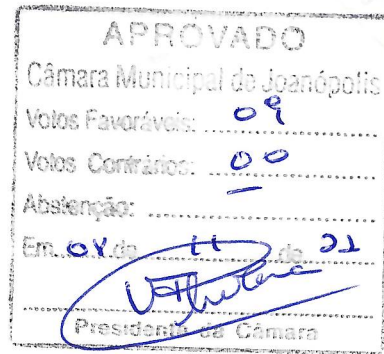 APROVADO
Câmara Municipal de Joanópolis
Votos Favoráveis: 09
Votos Contrários: 00
Abstenção: —
Em de 11 de 21
Presidente da Câmara